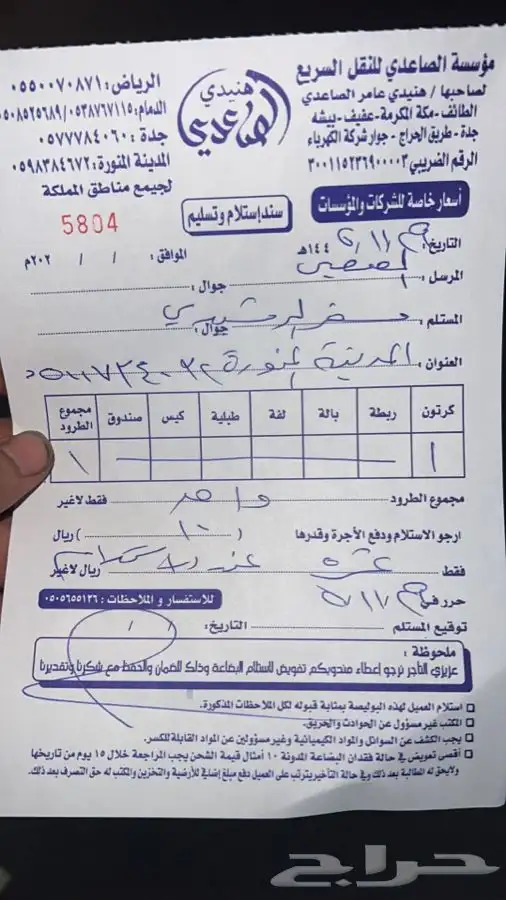 مؤسسة الصاعدي للنقل السريع
لصاحبها / هنيدي عامر الصاعدي
الطائف - مكة المكرمة - عفيف - بيشه
جدة - طريق الحراج - جوار شركة الكهرباء
الرقم الضريبي ٣٠٠١١٥٢٣٦٩٠٠٠٠٣
أسعار خاصة للشركات والمؤسسات
هنيدي
الصاعدي
سند إستلام وتسليم
الرياض: ٠٥٥٠٠٧٠٨٧١
الدمام: ٠٥٣٨٧٦٧١١٥/٠٥٠٨٥٢٥٦٨٩
جدة : ٠٥٧٧٧٨٤٠٦٠
المدينة المنورة: ٠٥٩٨٣٨٤٦٧٢
لجميع مناطق المملكة
5804
التاريخ: ٥/١١/ ١٤٤هـ الموافق : / / ٢٠٢م
المرسل : جوال :
المستلم : جوال :
العنوان : المدينة المنورة
كرتون ربطة بالة لفة طبلية كيس صندوق مجموع الطرود
١ ١
مجموع الطرود واحد فقط لاغير
ارجو الاستلام ودفع الأجرة وقدرها (١٠) ريال
فقط عشره عند ريال لاغير
حرر في ٥/١١ للاستفسار و الملاحظات : ٠٥٠٥٦٥٥١٢٦
توقيع المستلم التاريخ: / /
ملحوظة :
عزيزي التاجر نرجو إعطاء مندوبكم تفويض لاستلام البضاعة وذلك للضمان والحفظ مع شكرنا وتقديرنا
استلام العميل لهذه البوليصة بمثابة قبوله لكل الملاحظات المذكورة.
المكتب غير مسؤول عن الحوادث والحريق.
يجب الكشف عن السوائل والمواد الكيميائية وغير مسؤولين عن المواد القابلة للكسر.
أقصى تعويض في حالة فقدان البضاعة المدونة ١٠ أمثال قيمة الشحن يجب المراجعة خلال ١٥ يوم من تاريخها
ولايحق له المطالبة بعد ذلك وفي حالة التأخير يترتب على العميل دفع مبلغ إضافي للأرضية والتخزين والمكتب له حق التصرف بعد ذلك.
حراج